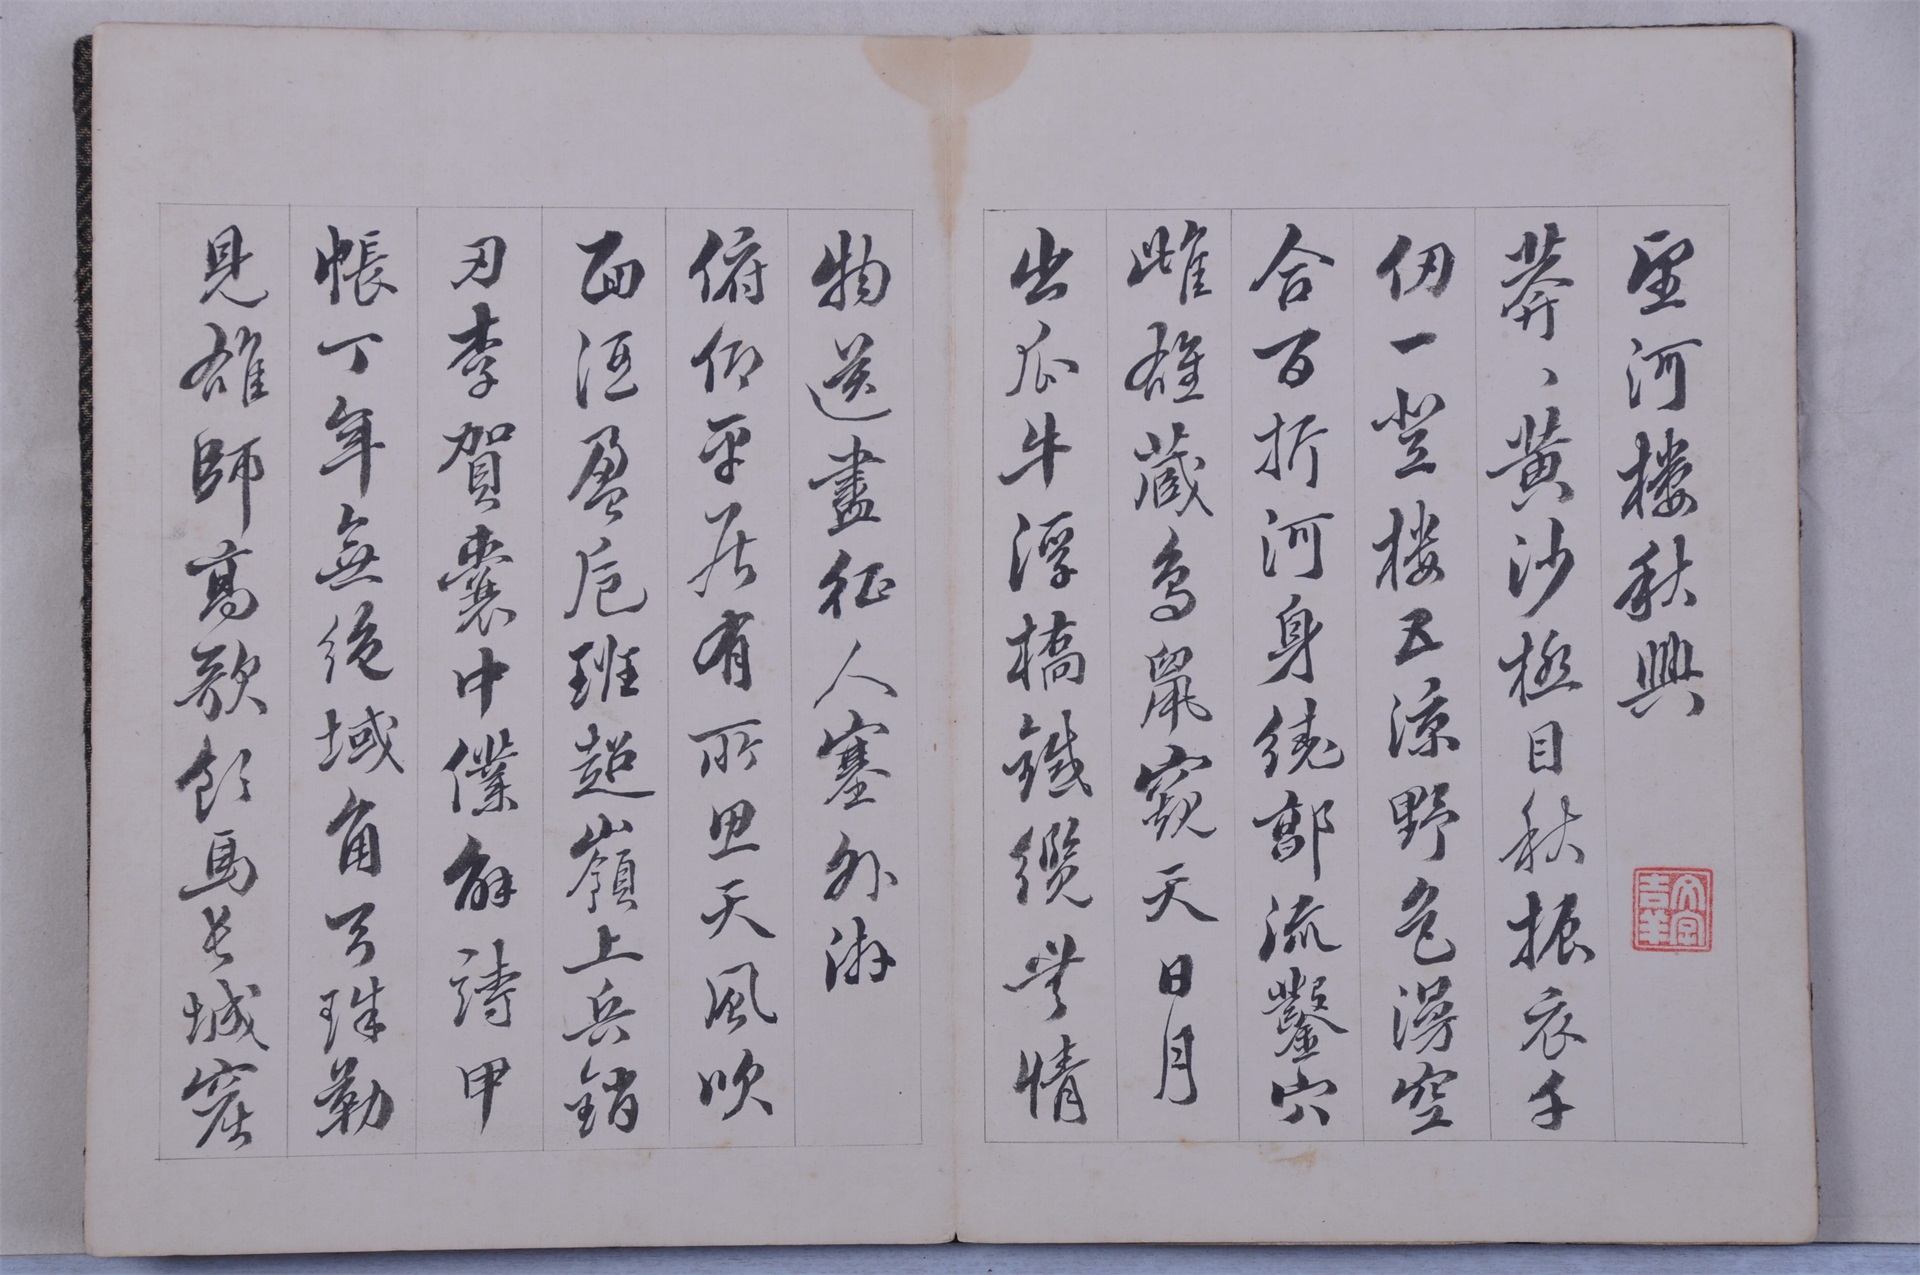 望河樓秋興
文字吉羊
莽、黃沙極目秋振衣千
仞一登樓五涼野色漫空
合百折河身繞郭流鑿穴
雌雄藏鳥鼠窺天日月
出瓜牛浮橋鐵纜無情
物送盡征人塞外游
俯仰平居有所思天風吹
面酒盈卮班超嶺上兵銷
刃李賀囊中僕解詩甲
帳丁年無絕域角弓珠勒
見雄師高歌飲馬長城窟